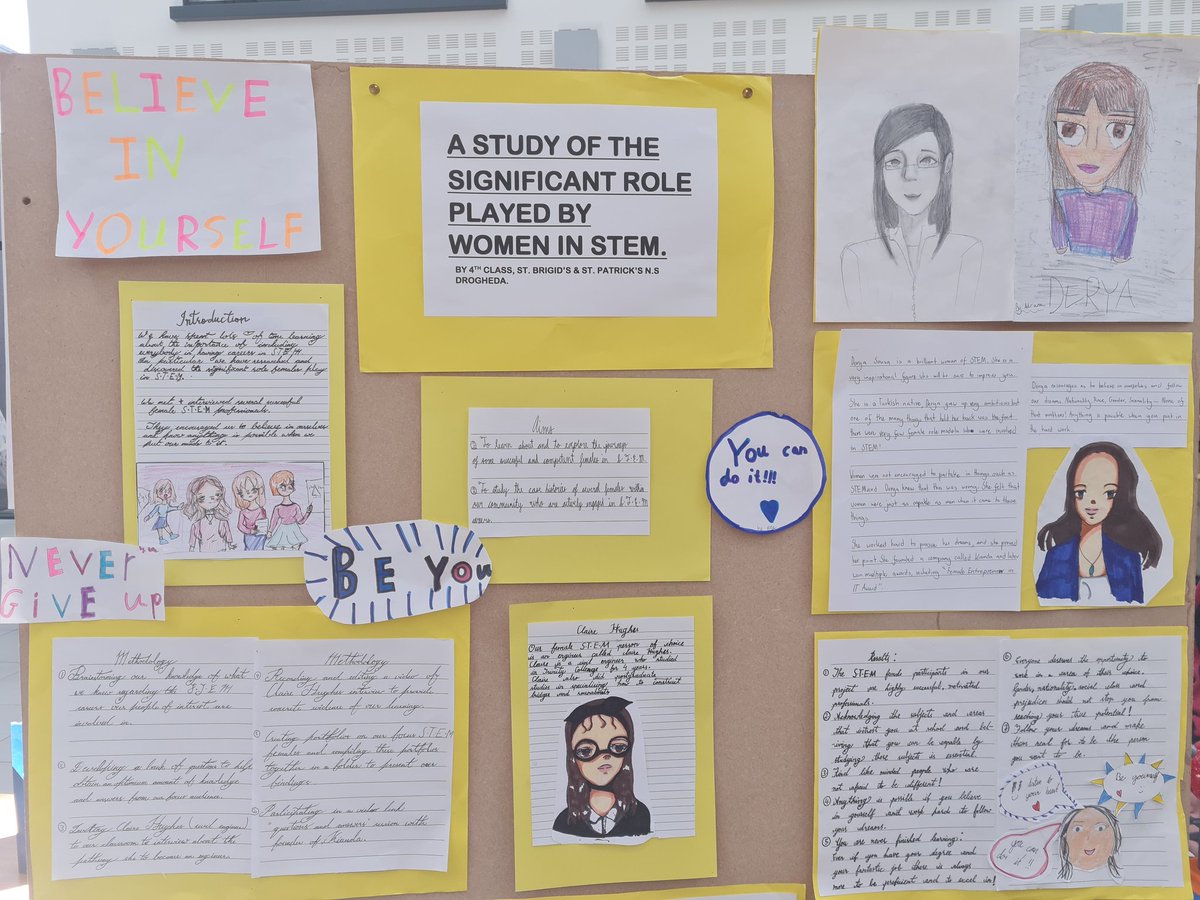 BELIEVE
IN
YOURSELF
A STUDY OF THE
SIGNIFICANT ROLE
PLAYED BY
WOMEN IN STEM.
BY 4TH CLASS, ST. BRIGID'S & ST. PATRICK'S N.S
DROGHEDA.
DERYA
Introduction
We have spent lots of time learning
about the importance of including
everybody in having careers in S.T.E.M
In particular we have researched and
discovered the significant role females play
in S.T.E.M.
We met & interviewed several successful
female S.T.E.M professionals.
They encouraged us to believe in ourselves
and know anything is possible when we
put our minds to it.
Aims
① To learn about and to explore the journeys
of some successful and competent females in S.T.E.M
② To study the case histories of several females within
our community who are utterly engaged in S.T.E.M
careers.
You can
do it!!!
Derya Sousa is a brilliant woman of STEM. She is a
very inspirational figure who will be sure to impress you.
She is a Turkish native. Derya grew up very ambitious but
one of the many things that held her back was the fact
there were very few female role models who were involved
in STEM!
Women were not encouraged to partake in things such as
STEM and Derya knew that this was wrong. She felt that
women were just as capable as men when it came to these
things.
She worked hard to pursue her dreams and she proved
her point. She founded a company called Kianda and later
won multiple awards, including "Female Entrepreneur in
IT Award".
Derya encourages us to believe in ourselves and follow
our dreams. Nationality, Race, Gender, Sexuality - None of
that matters! Anything is possible when you put in
the hard work.
NEVER
GIVE up
BE YOU
Methodology
① Brainstorming our knowledge of what
we know regarding the S.T.E.M
careers our people of interest are
involved in.
② Developing a bank of questions to help
obtain an optimum amount of knowledge
and answers from our focus audience.
③ Inviting Claire Hughes (civil engineer)
to our classroom to interview about the
pathway she to become an engineer.
Methodology
Recording and editing a video of
Claire Hughes interview to provide
concrete evidence of our learning.
Creating portfolios on our focus S.T.E.M
females and compiling these portfolios
together in a folder to present our
findings.
Participating in a video link
"questions and answers" session with
founder of Kianda.
Claire Hughes
Our female S.T.E.M person of choice
is an engineer called Claire Hughes.
Claire is a civil engineer who studied
in Trinity College for 4 years.
Claire also did postgraduate
studies in specialising how to construct
bridges and
Results:
① The STEM female participants in our
project are highly successful, motivated
professionals.
② Acknowledging the subjects and areas
that interest you at school and
that you can be capable by
studying these subject is essential.
③ Find like minded people who are
not afraid to be different!
④ Anything is possible if you believe
in yourself and work hard to follow
your dreams.
⑤ You are never finished learning:
Even if you have your degree and
your fantastic job there is always
more to be proficient and to excel in!
⑥ Everyone deserves the opportunity to
work in a area of their choice.
Gender, nationality, social class and
prejudices should not stop you from
reaching your true potential!
⑦ Follow your dreams and make
them real for to be the person
you want to be.
listen to
your heart
Be yourself
you can
do it!!